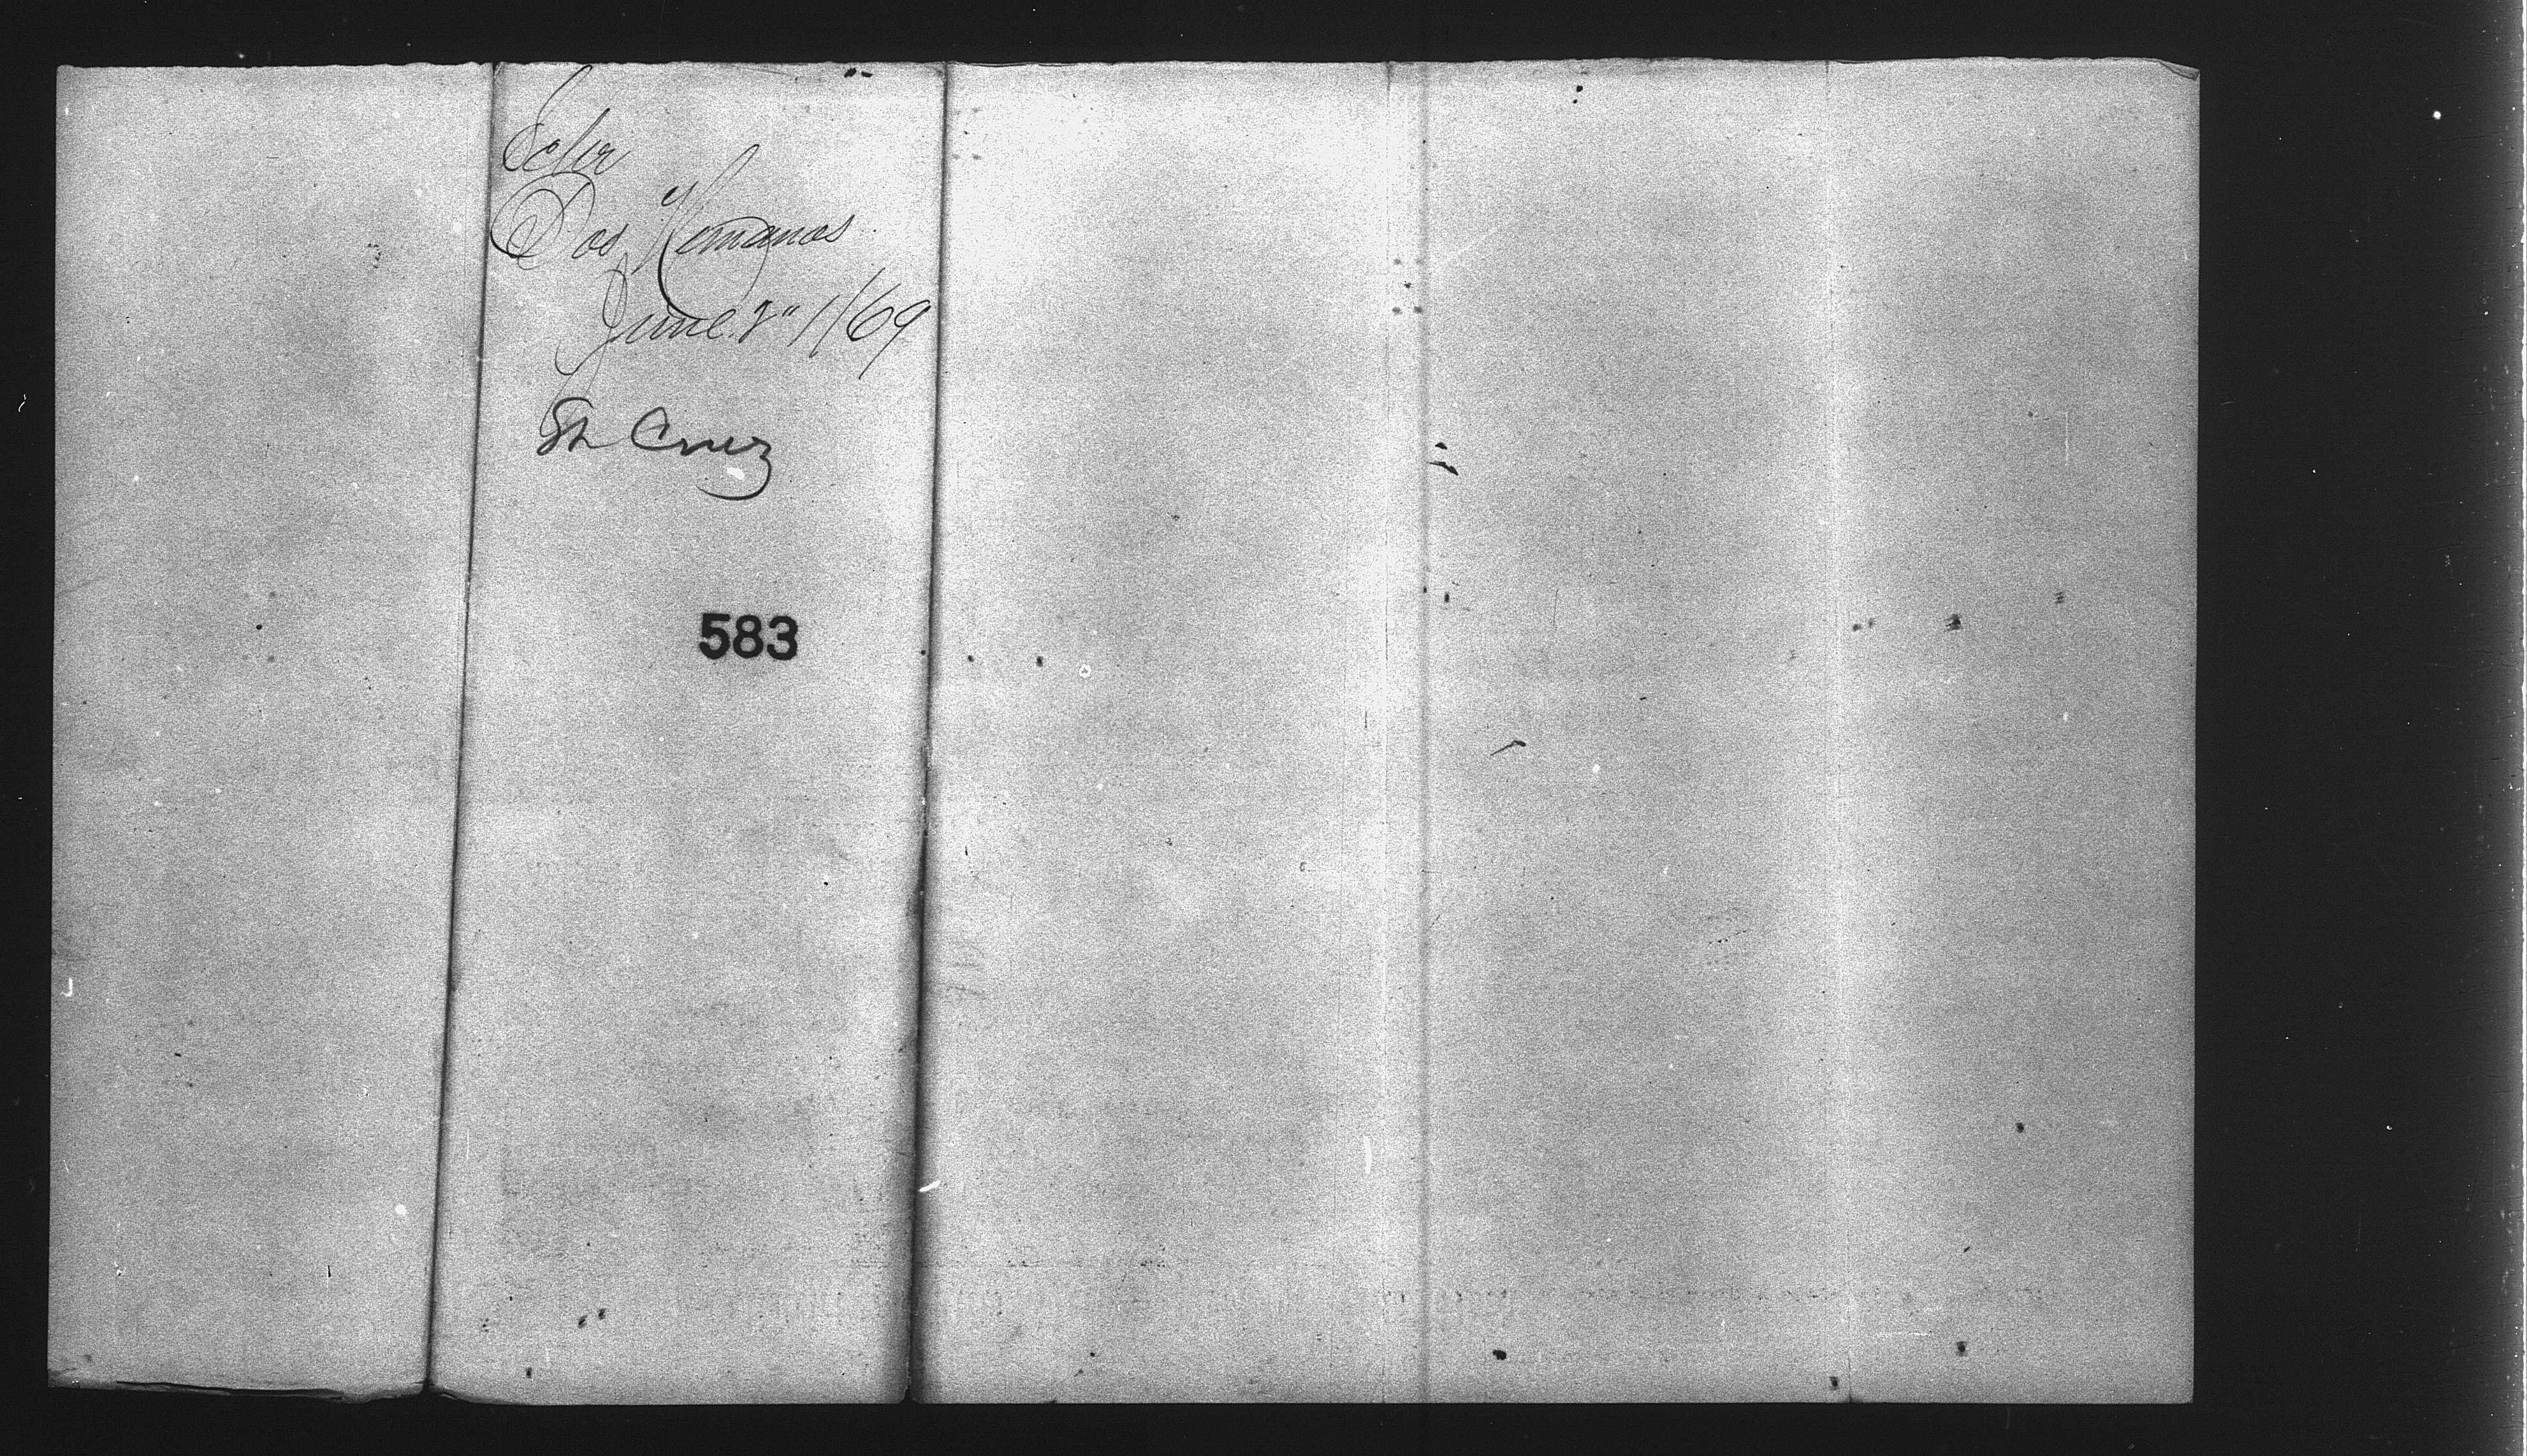 Schr
Dos Hemanos
June 2" 1/69
St Cruz
583